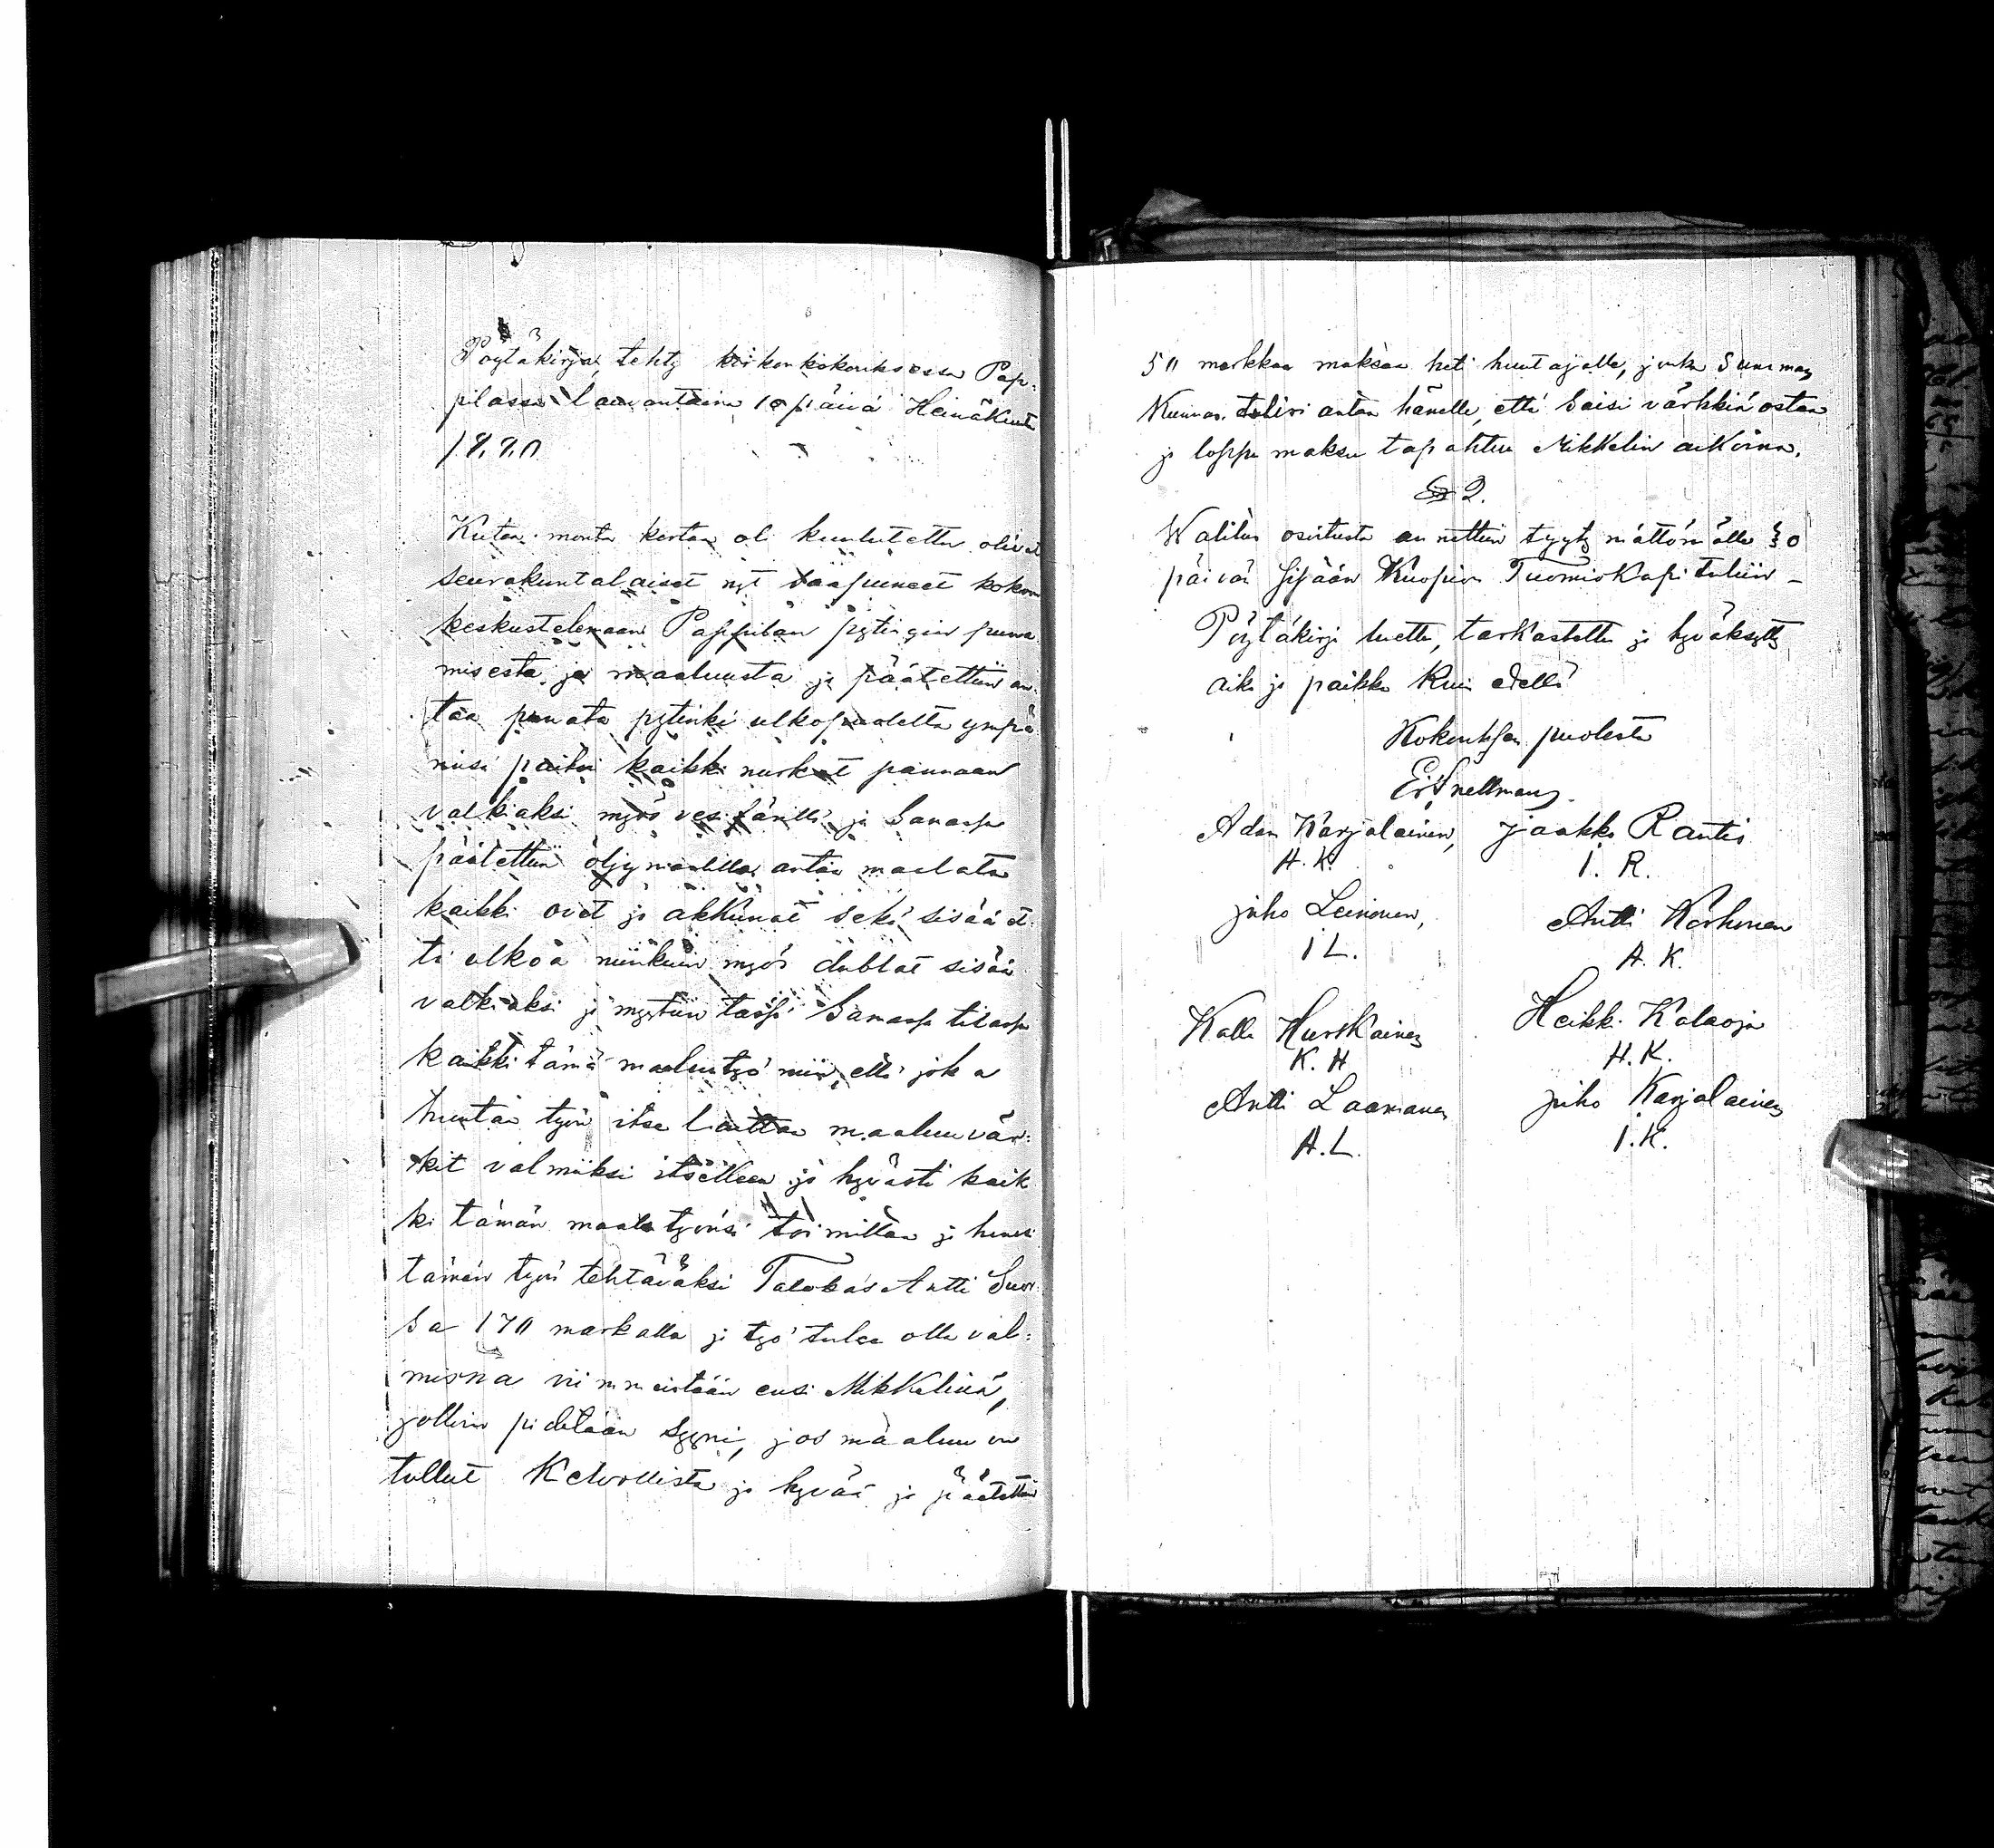 Pöytäkirja, tehty kirkonkokouksessa Pap-
pilassa lauantaina 10 päivä Heinäkuuta
1890
Kuten monta kertaa oli kuulutettu olivat
seurakuntalaiset nyt saapuneet kokoon
keskustelemaan Pappilan pytingin puna
misesta ja maaluusta ja päätettiin an-
taa punata pytinki ulkopuolelta ympä
riinsi paitsi kaikki nurkat pannaan
valkiaksi myös vesi färillä ja Samassa
päätettiin öljymaalilla antaa maalata
kaikki ovet ja akkunat sekä sisää et-
tä ulkoa niinkuin myös dublat sisää
valkiaksi ja myytiin tässä Samassa tilassa
kaikki tämä maaluutyö niin, että joka
huutaa työn itse laittaa maaluuvär-
kit valmiiksi itselleen ja hyvästi kaik
ki tämän maalutyönsä toimittaa ja huusi
tämän työn tehtäväksi Talokas Antti Suor
sa 170 markalla ja työ tulee olla val-
misna viimmeistään ensi Mikkelinä,
jolloin pidetään syyni, jos maaluu on
tullut Kelvollista ja hyvää ja päätettiin
50 markkaa maksaa heti huutajalle, jonka Summan
Kunnan tuliisi antaa hänelle, että Saisi värkkiä ostaa
ja loppu maksu tapahtuu Mikkelin aikoina.
§ 2.
Walitus osoitusta annettiin tyytymättömälle 30
päivän sisään Kuopion Tuomiokapituliin -
Pöytäkirja luettu, tarkastettu ja hyväksytty
aika ja paikka Kuin edellä
Kokouksen puolesta
E. Snellman.
Adam Karjalainen, Jaakko Rantis
A. K. I. R.
Juho Leinonen, Antti Korhonen
I L. A. K.
Kalle Hurskainen Heikki Kalaoja
K. H H. K.
Antti Laamanen Juho Karjalainen
A. L. I. K.